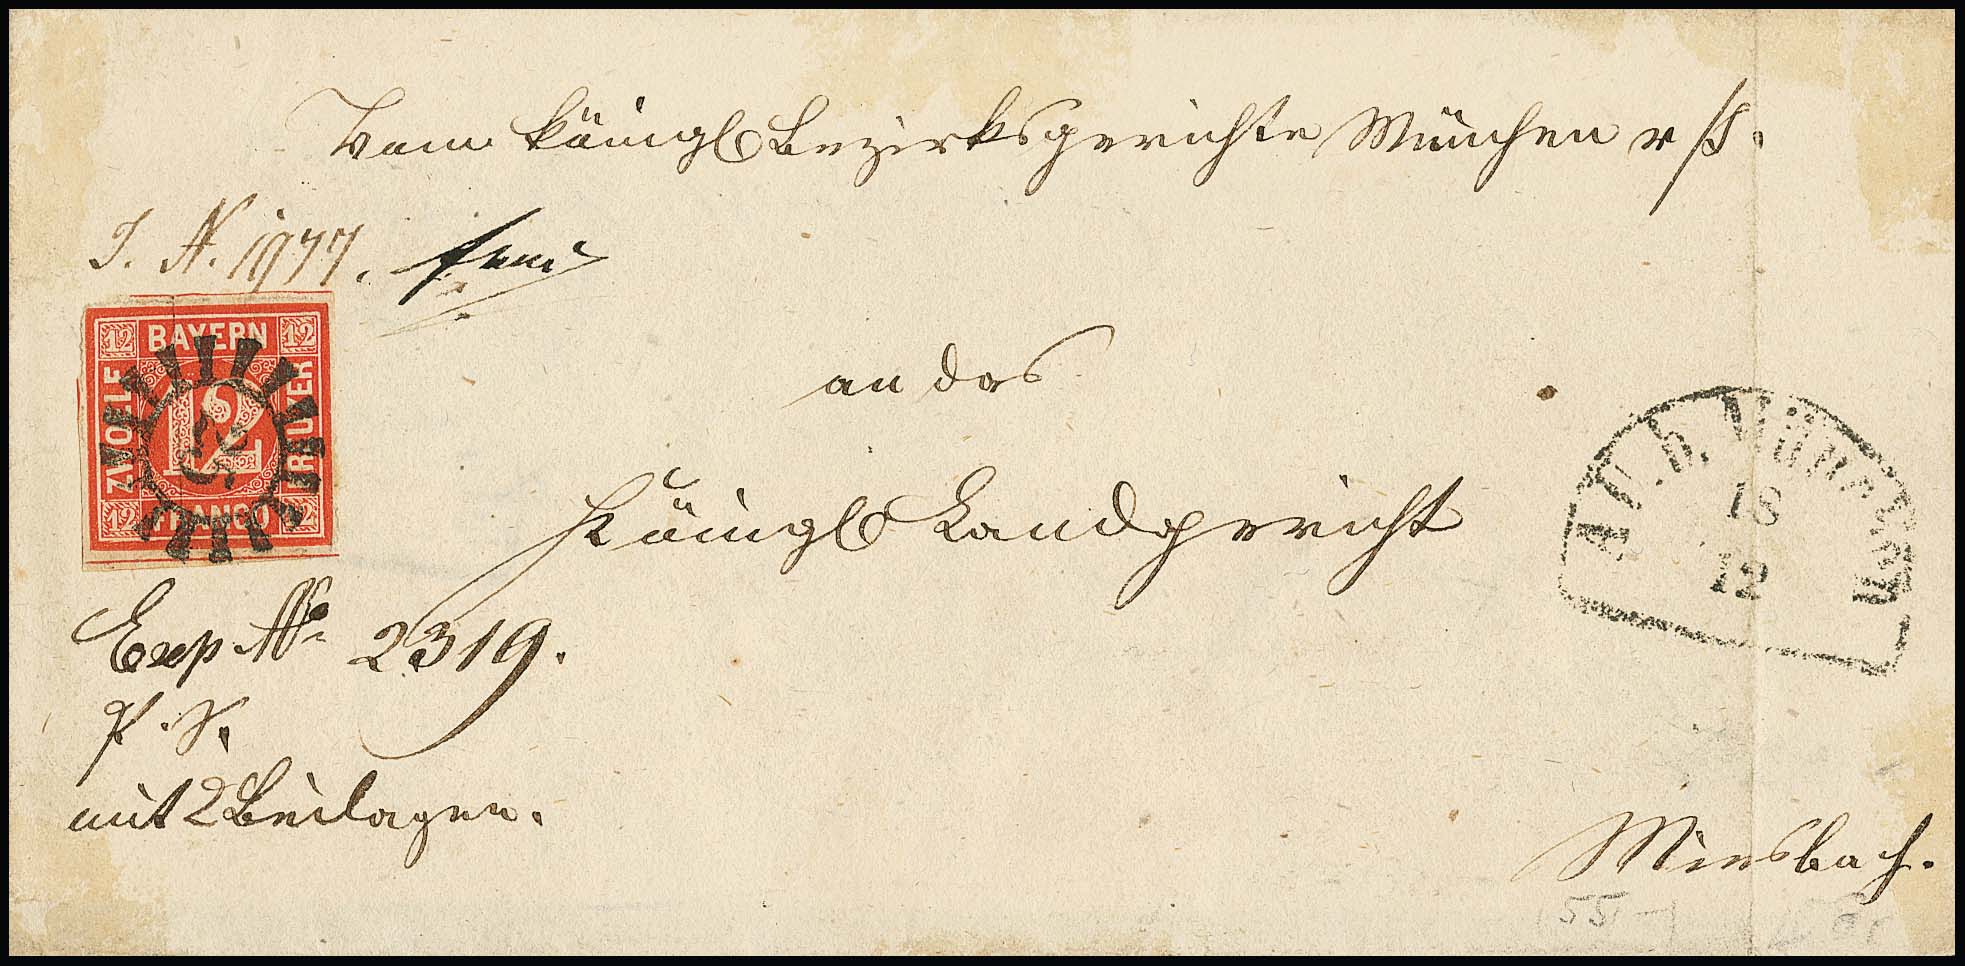 Vom königl Bezirksgerichte München r/I.
J. N. 1977.
BAYERN
12 12
ZWÖLF
12
KREUZER
12 12
FRANCO
325
an das
Königl Landgericht
18
12
Exp № 2319.
P. S.
mit 2 Beilagen.
Miesbach.
55